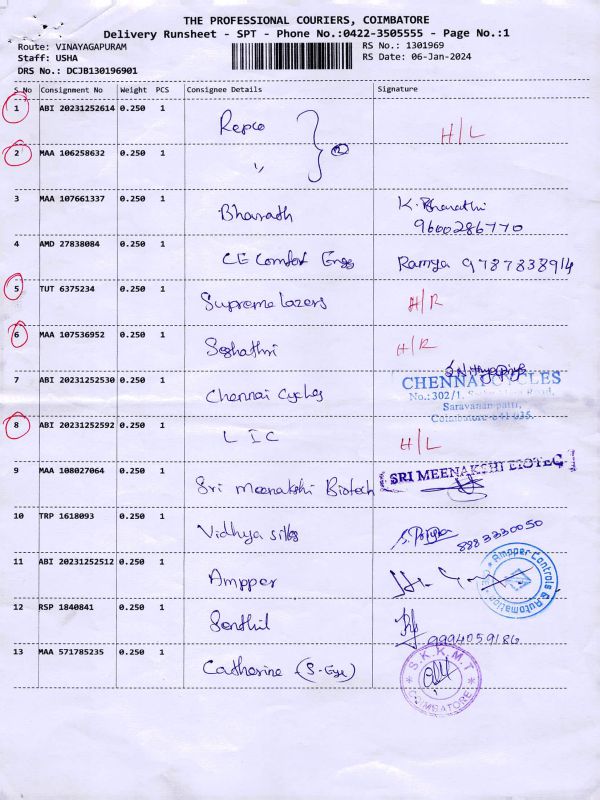 THE PROFESSIONAL COURIERS, COIMBATORE
Delivery Runsheet - SPT - Phone No.:0422-3505555 - Page No.:1
Route: VINAYAGAPURAM RS No.: 1301969
Staff: USHA RS Date: 06-Jan-2024
DRS No.: DCJB130196901
S No Consignment No Weight PCS Consignee Details Signature
1 ABI 20231252614 0.250 1 Repco H/L
2 MAA 106258632 0.250 1 " 2
3 MAA 107661337 0.250 1 Bharath K. Bharathi
9600286770
4 AMD 27838084 0.250 1 CE Comfort Engg Ramya 9787838914
5 TUT 6375234 0.250 1 Supreme lazers H/R
6 MAA 107536952 0.250 1 Seshathri H/R
7 ABI 20231252530 0.250 1 Chennai Cycles CHENNAI CYCLES
No.:302/1, Road,
Saravanampatti,
Coimbatore-641 035.
8 ABI 20231252592 0.250 1 LIC H/L
9 MAA 108027064 0.250 1 Sri meenakshi Biotech SRI MEENAKSHI BIOTEC
10 TRP 1618093 0.250 1 Vidhya silks 8883330050
11 ABI 20231252512 0.250 1 Ampper Ampper Controls & Automation
12 RSP 1840841 0.250 1 Senthil 9994059186
13 MAA 571785235 0.250 1 Catherine (S-Eye) S.K.K.M.T COIMBATORE